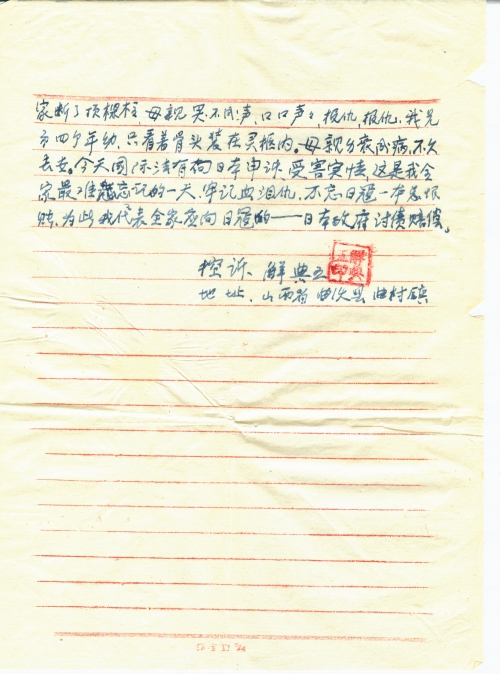 家断了顶樑柱，母亲哭不成声，口口声声报仇，报仇，我兄
弟四个年幼，只看着骨头装在灵柩内。母亲身衰成病，不久
去世。今天国际法有向日本申诉受害实情，这是我全
家最难忘记的一天，牢记血泪仇，不忘日寇一本怨恨
账，为此我代表全家应向日寇的——日本政府讨债赔偿。
控诉：解典五
解典五印
地址：山西省曲沃县曲村镇